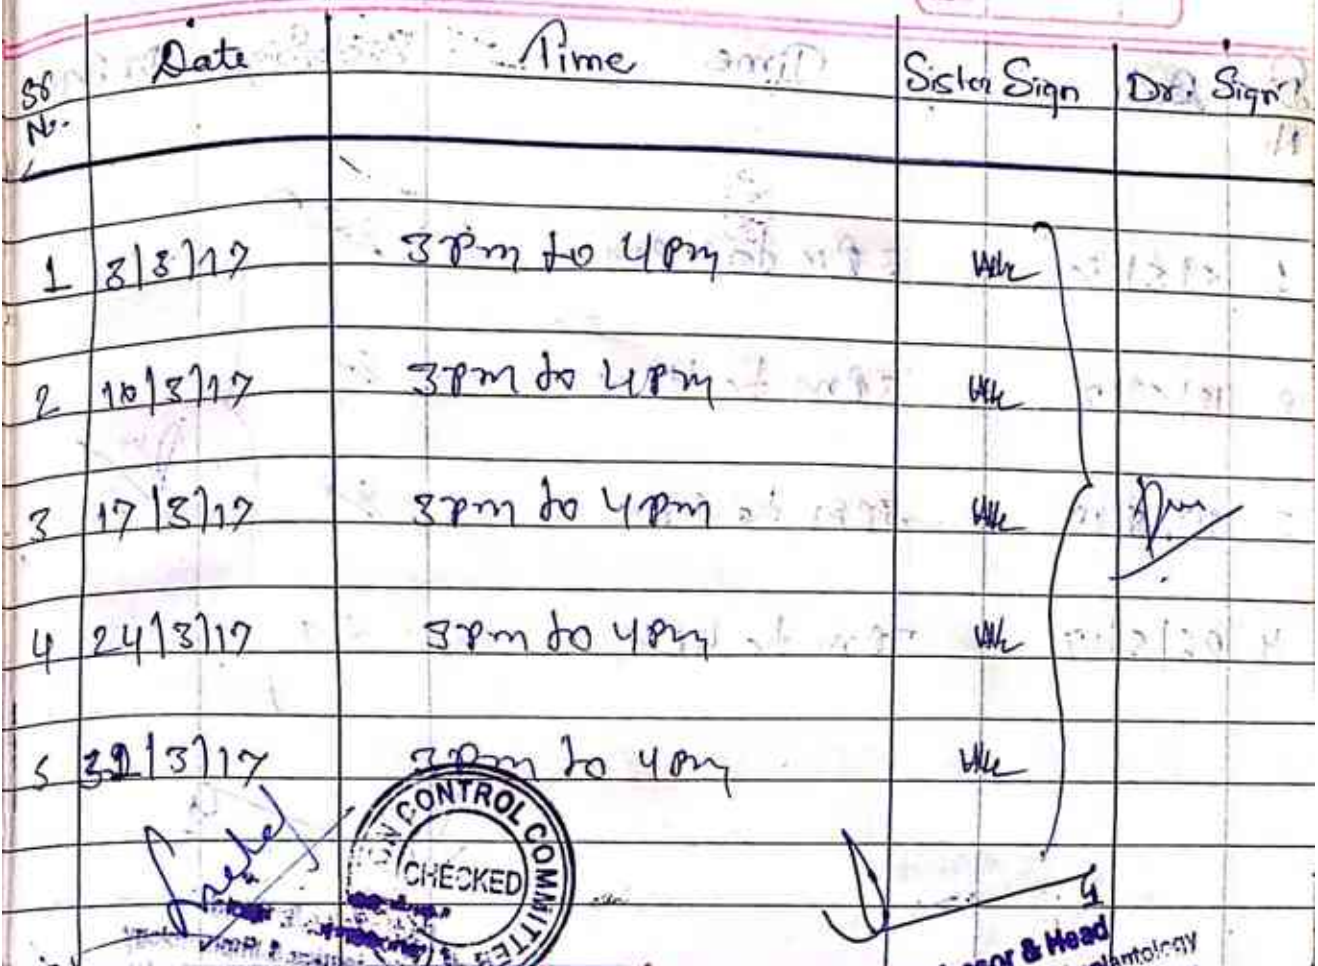 Sr No. Date Time Sister Sign Dr. Sign
1 3/3/17 3pm to 4pm
2 10/3/17 3pm to 4pm
3 17/3/17 3pm to 4pm
4 24/3/17 3pm to 4pm
5 31/3/17 3pm to 4pm
ON CONTROL COMMITTEE
CHECKED
sor & Head